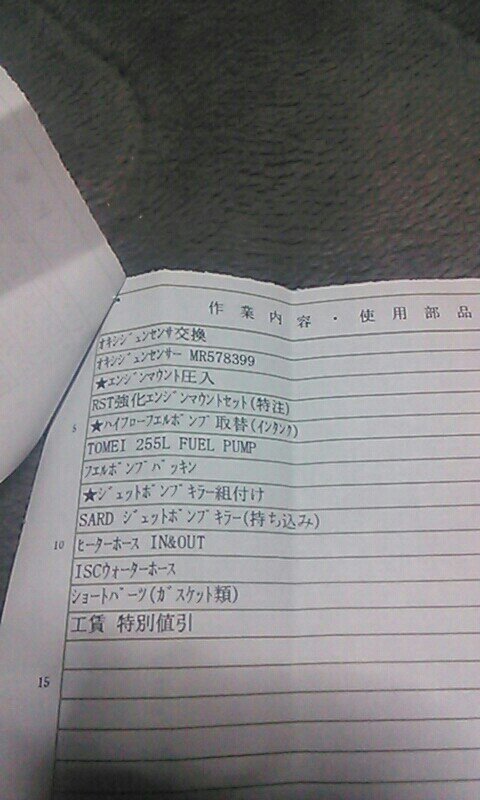 作業内容・使用部品
ｵｷｼｼﾞｪﾝｾﾝｻ交換
ｵｷｼｼﾞｪﾝｾﾝｻｰ MR578399
★ｴﾝｼﾞﾝﾏｳﾝﾄ圧入
RST強化ｴﾝｼﾞﾝﾏｳﾝﾄｾｯﾄ(特注)
5 ★ﾊｲﾌﾛｰﾌｭｴﾙﾎﾟﾝﾌﾟ取替(ｲﾝﾀﾝｸ)
TOMEI 255L FUEL PUMP
ﾌｭｴﾙﾎﾟﾝﾌﾟﾊﾟｯｷﾝ
★ｼﾞｪｯﾄﾎﾟﾝﾌﾟｷﾗｰ組付け
SARD ｼﾞｪｯﾄﾎﾟﾝﾌﾟｷﾗｰ(持ち込み)
10 ﾋｰﾀｰﾎｰｽ IN&OUT
ISCｳｫｰﾀｰﾎｰｽ
ｼｮｰﾄﾊﾟｰﾂ(ｶﾞｽｹｯﾄ類)
工賃 特別値引
15